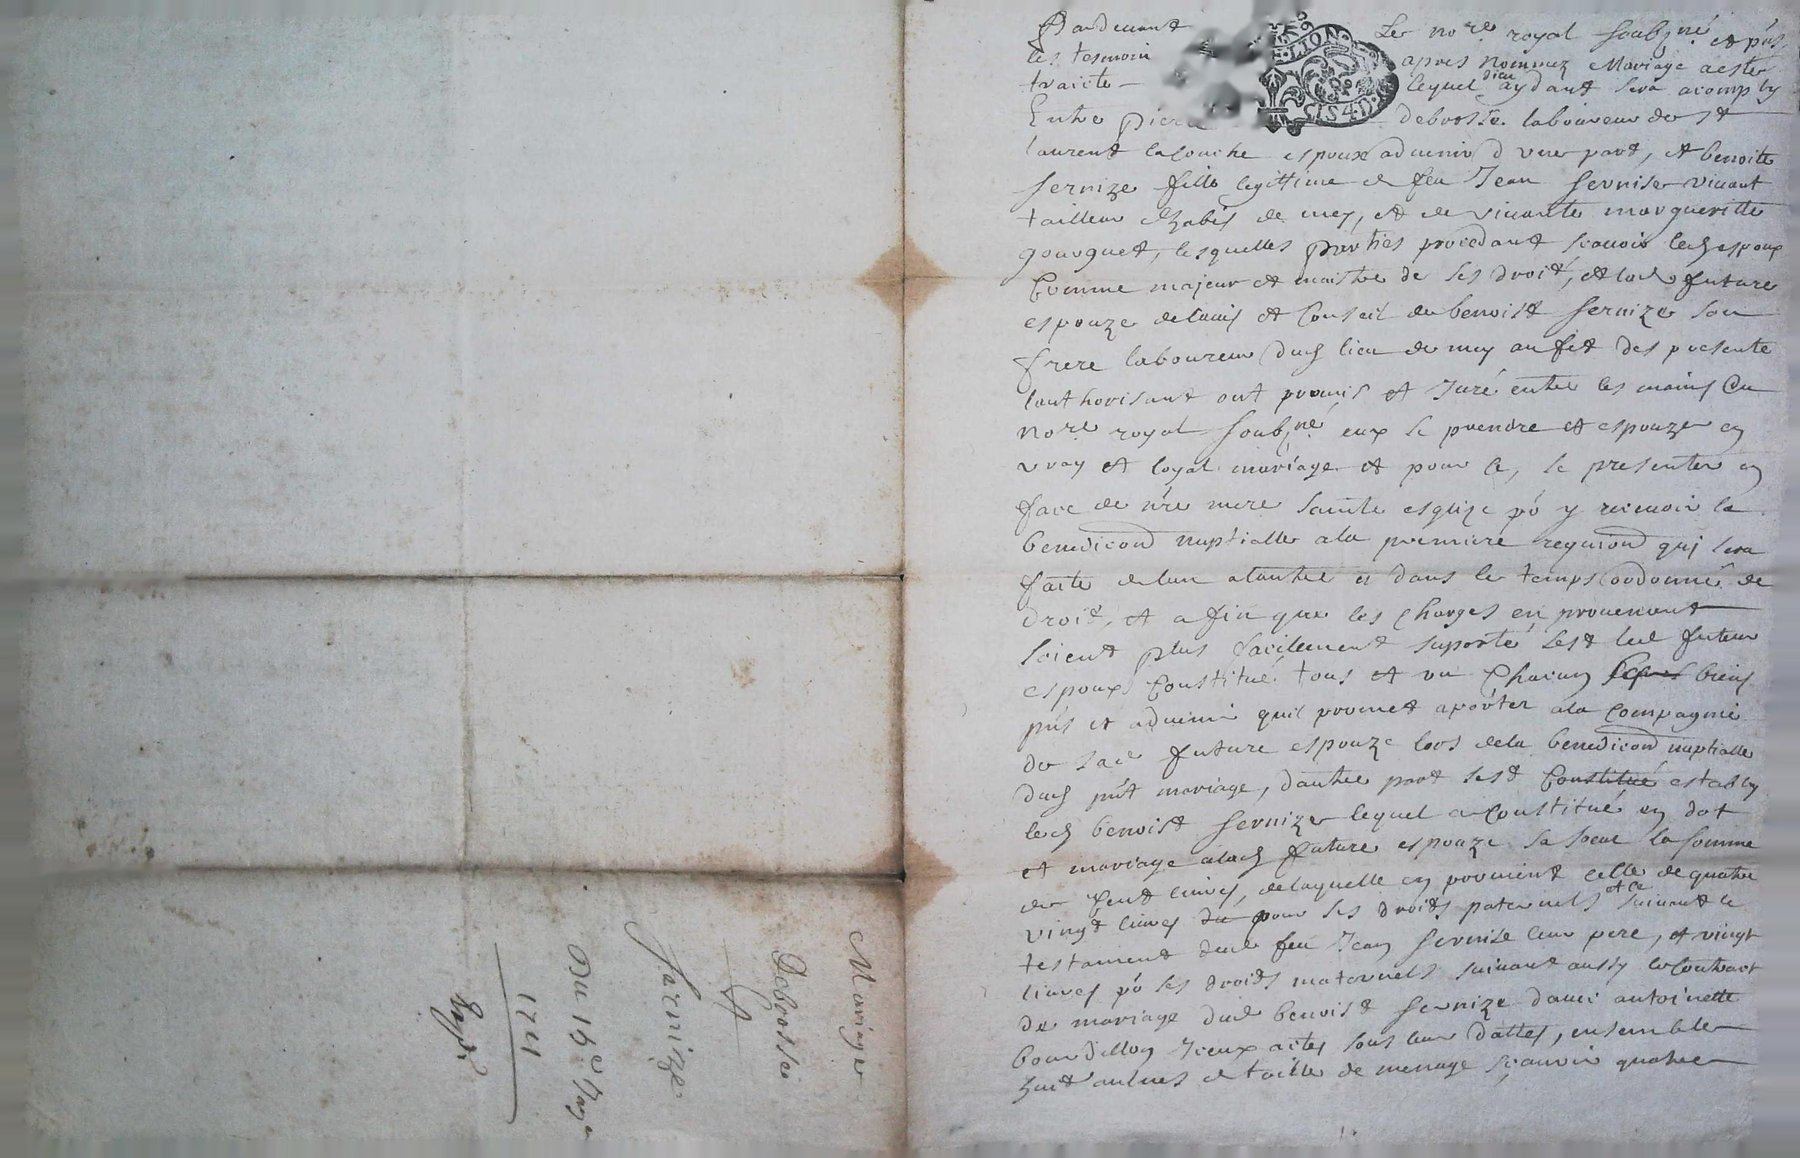 Pardevant Le no.re royal soubz.né et p'ns
les tesmoin apres nommez Mariage a este
traicte lequel dieu aydant sera acomply
Entre pierre debrosse laboureur de st
laurent la couche espoux advenir d'une part, et benoite
sernize fille legittime de feu Jean sernise vivant
tailleur d'habis de mey, et de vivante margueritte
gouguet, lesquelles parties procedant scavoir led espoux
Comme majeur et maistre de ses droit, et lad future
espouze de lavis et Conseil de benoist sernize son
frere laboureur dud lieu de mey au fet des presente
lauthorisant ont promis et Juré entre les mains du
no.re royal soubz.né eux se prendre et espouzer en
vray et loyal mariage et pour ce, se presenter en
face de n're mere sainte esglize po' y recevoir la
benediction nuptialle a la premiere requision qui sera
faite de lun a lautre et dans le temps ordonné de
droit, et afin que les charges en provenant
soient plus facilement suporté sest led futeur
espoux Constitué tous et un Chacun ses biens
p'ns et advenir quil promet aporter a la Compagnie
de sad future espouze lors de la benediction nuptialle
dud p'nt mariage, dautre part sest Constitué estably
led benoist sernize lequel a Constitué en dot
et mariage a lad future espouze sa soeur la somme
de Cent livres, de laquelle en provient celle de quatre
vingt livres du pour ses droits paternels et ce suivant le
testament dud feu Jean sernise leur pere, et vingt
livres po' ses droits maternels suivant aussy le Contract
de mariage dud benoist sernize avec antoinette
bourdillon Iceux actes sous leur dattes, ensemble
huit aulnes de toille de menage scavoir quatre
LION
Mariage
Debrosse
Et
Sarnize
Du 16e
1721